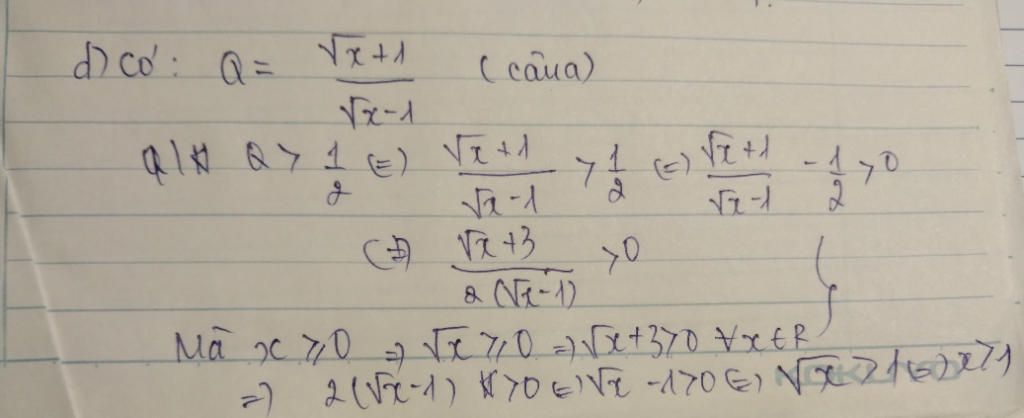 d) Có: Q = (√x+1)/(√x-1) (câu a)
Q > 1/2 (=) (√x+1)/(√x-1) > 1/2 (=) (√x+1)/(√x-1) - 1/2 > 0
(=) (√x+3)/(2(√x-1)) > 0 }
Mà x ≥ 0 => √x ≥ 0 => √x+3>0 ∀x∈R
=) 2(√x-1) >0 (=) √x-1>0 (=) √x > 1 (=) x>1